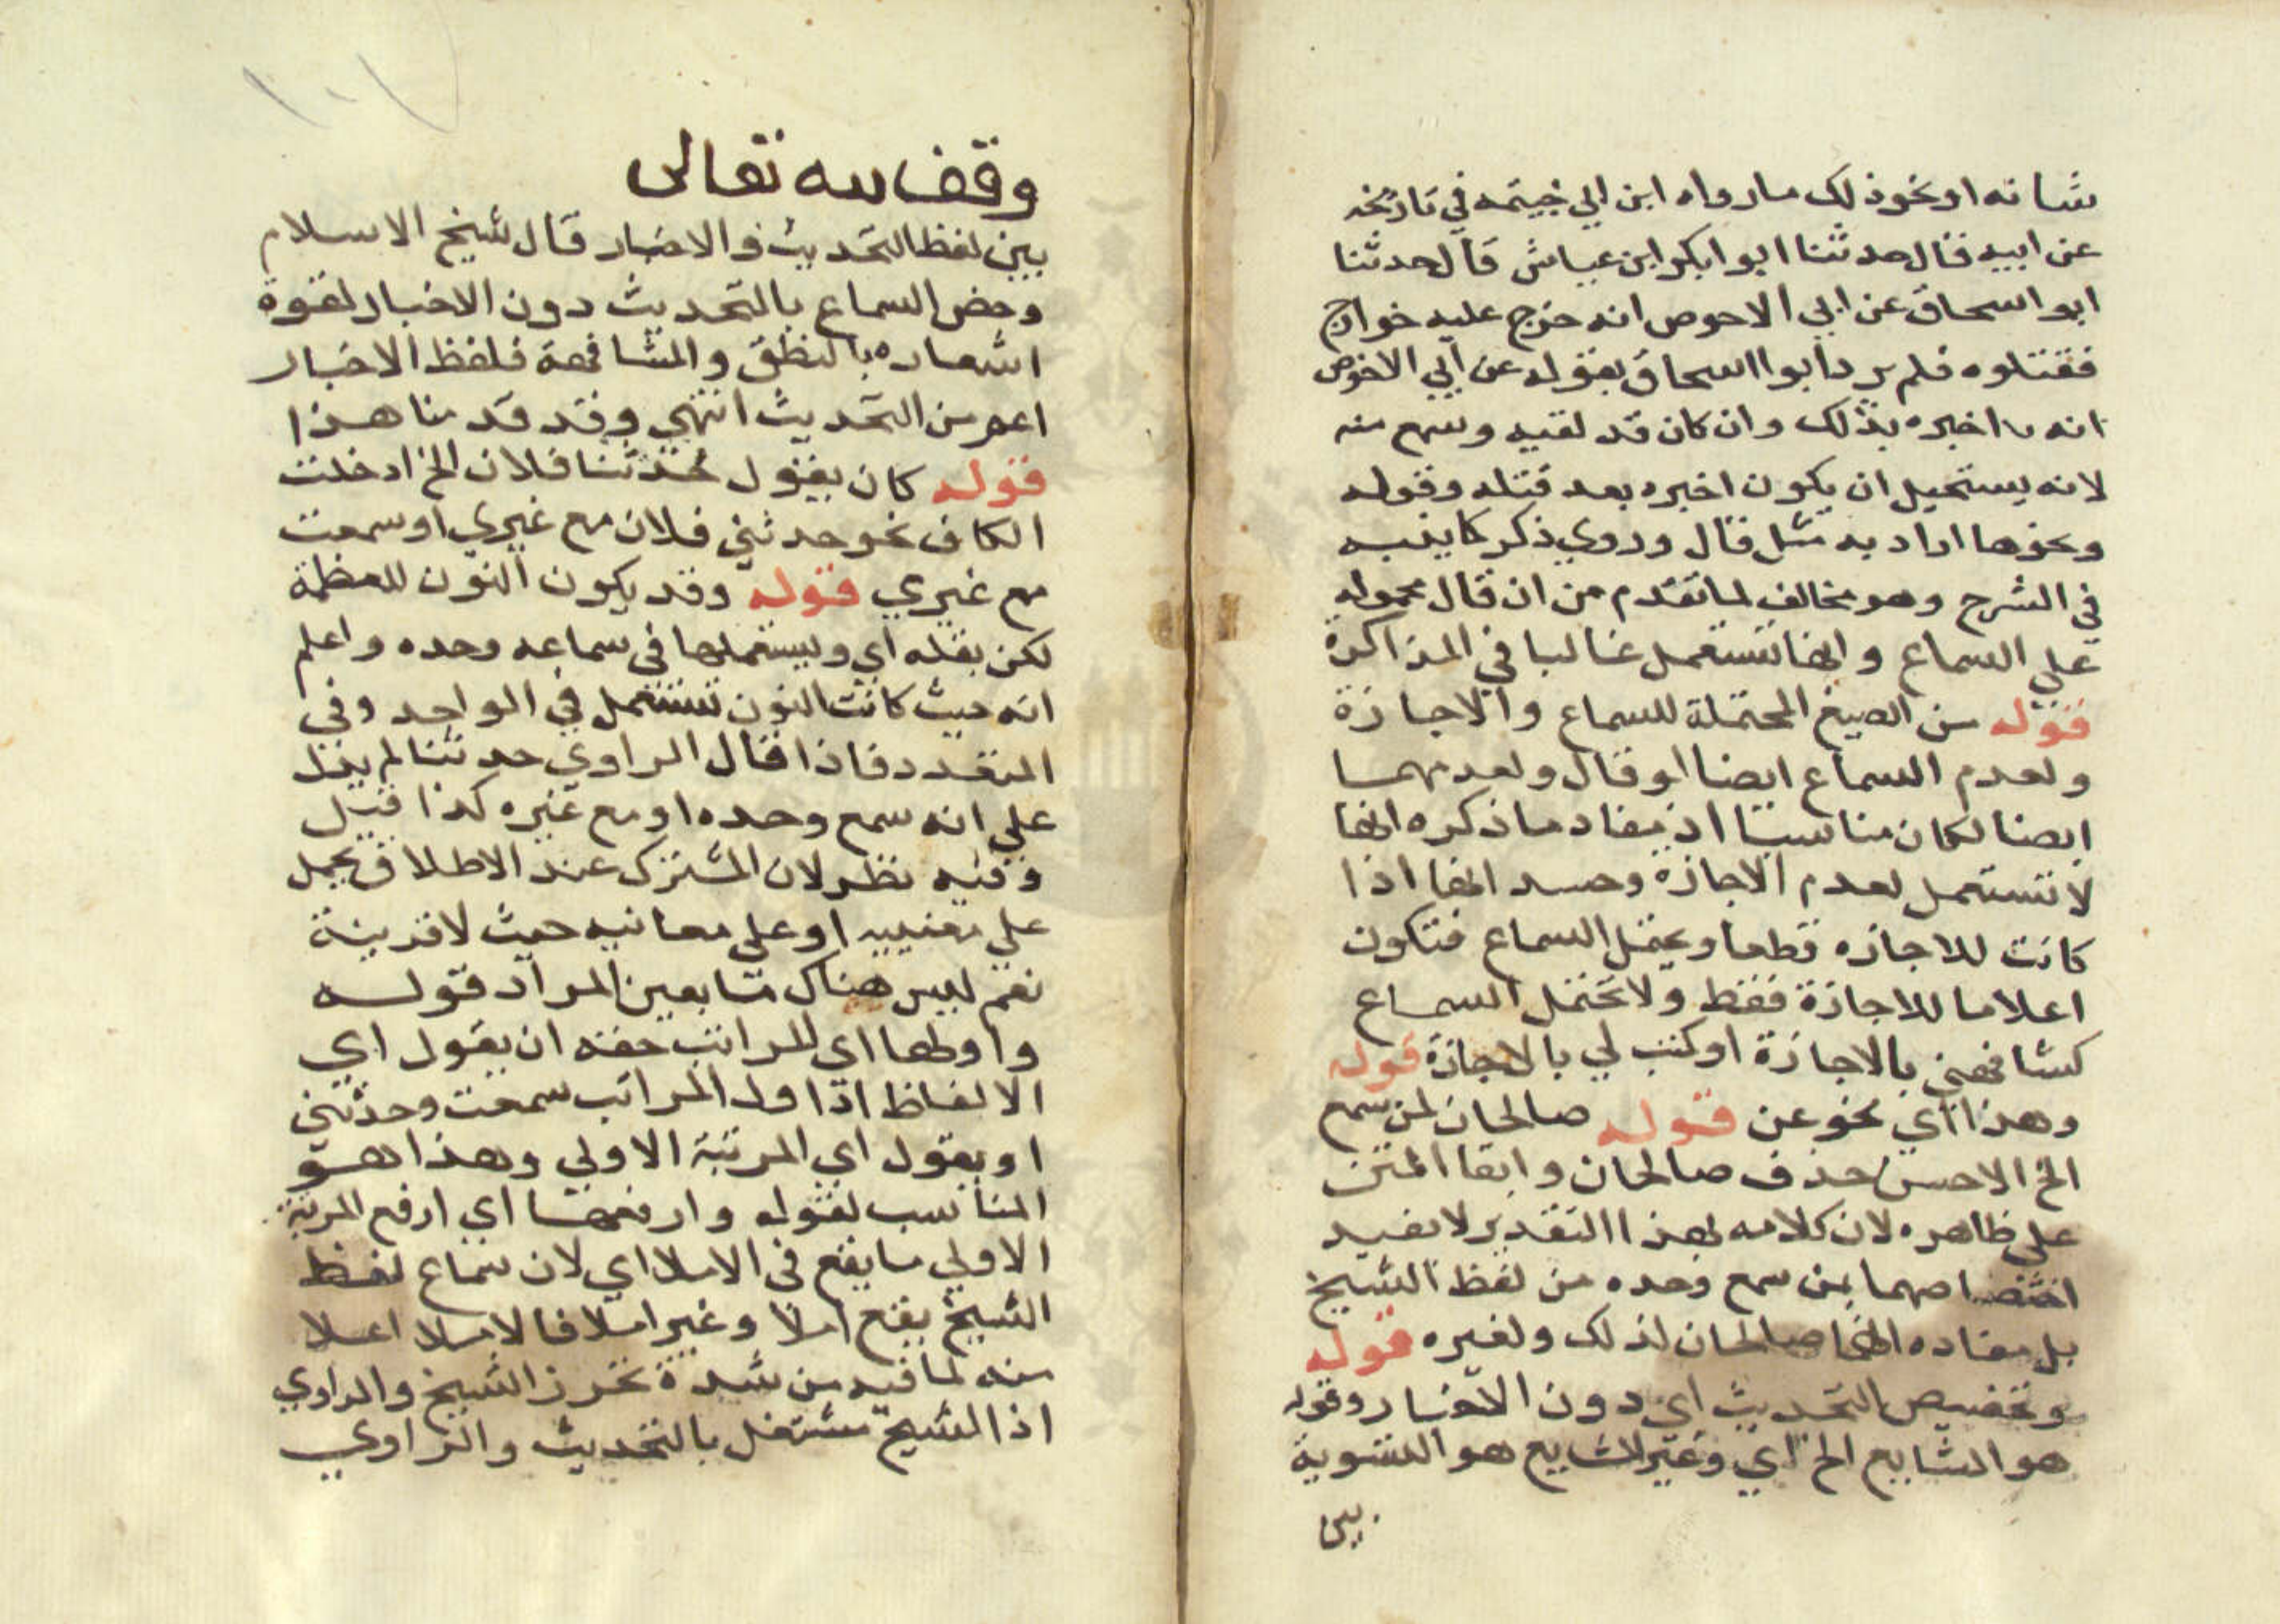 شانه او نحو ذلك ما رواه ابن ابي خيثمه في تاريخه
عن ابيه قال حدثنا ابوا بكر ابن عياش قال حدثنا
ابوا اسحاق عن ابي الاحوص انه خرج عليه خوارج
فقتلوه فلم يرد ابوا اسحاق بقوله عن ابي الاخوص
انه اخبره بذلك وان كان قد لقيه وسمع منه
لانه يستحيل ان يكون اخبره بعد قتله وقوله
ونحوها اراد به مثل قال وروي ذكر كما ينبه
في الشرح وهو مخالف لما تقدم من ان قال محموله
على السماع وانها تستعمل غالبا في المذاكرة
قوله من الصيغ المحتملة للسماع والاجازة
ولعدم السماع ايضا لو قال ولعدمهما
ايضا لكان مناسبا اذ مفاد ما ذكره انها
لا تستعمل لعدم الاجازة وحسد انها اذا
كانت للاجازه قطعا ويحتمل السماع فتكون
اعلاما للاجازة فقط ولا تحتمل السماع
كشافهني بالاجازة او كتب لي بالاجازة قوله
وهذا اي نحو عن قوله صالحان لمن سمع
الخ الاحسن حذف صالحان وابقا المتن
على ظاهره لان كلامه بهذا التقدير لا يفيد
اختصاصهما بمن سمع وحده من لفظ الشيخ
بل مفاده انهما صالحان لذلك ولغيره قوله
وتخصيص التحديث اي دون الاخبار وقوله
هو الشايع الخ اي وغير الشايع هو التسوية
بين
١٠٧
وقف لله تعالى
بين لفظ التحديث والاخبار قال شيخ الاسلام
وخص السماع بالتحديث دون الاخبار لقوة
اشعاره بالنطق والمشافهة فلفظ الاخبار
اعم من التحديث انتهي وقد قدمنا هذا
قوله كان يقول حدثنا فلان الخ ادخلت
الكاف نحو حدثني فلان مع غيري او سمعت
مع غيري قوله وقد يكون النون للعظمة
لكن بقله اي ويستعملها في سماعه وحده واعلم
انه حيث كانت النون تستعمل في الواحد وفي
المتعدد فاذا قال الراوي حدثنا لم يدل
على انه سمع وحده او مع غيره كذا قيل
وفيه نظر لان المشترك عند الاطلاق يحمل
على معنييه او على معانيه حيث لا قرينة
نعم ليس هناك ما يعين المراد قوله
واولها اي المراتب حقه ان يقول اي
الالفاظ اذ اول المراتب سمعت وحدثني
او يقول اي المرتبة الاولي وهذا هو
المناسب لقوله وارفعها اي ارفع المرتبة
الاولي ما يقع في الاملا اي لان سماع لفظ
الشيخ يقع املا وغير املا فالاملا اعلا
منه لما فيه من شدة تحرز الشيخ والراوي
اذ الشيخ مشتغل بالتحديث والراوي